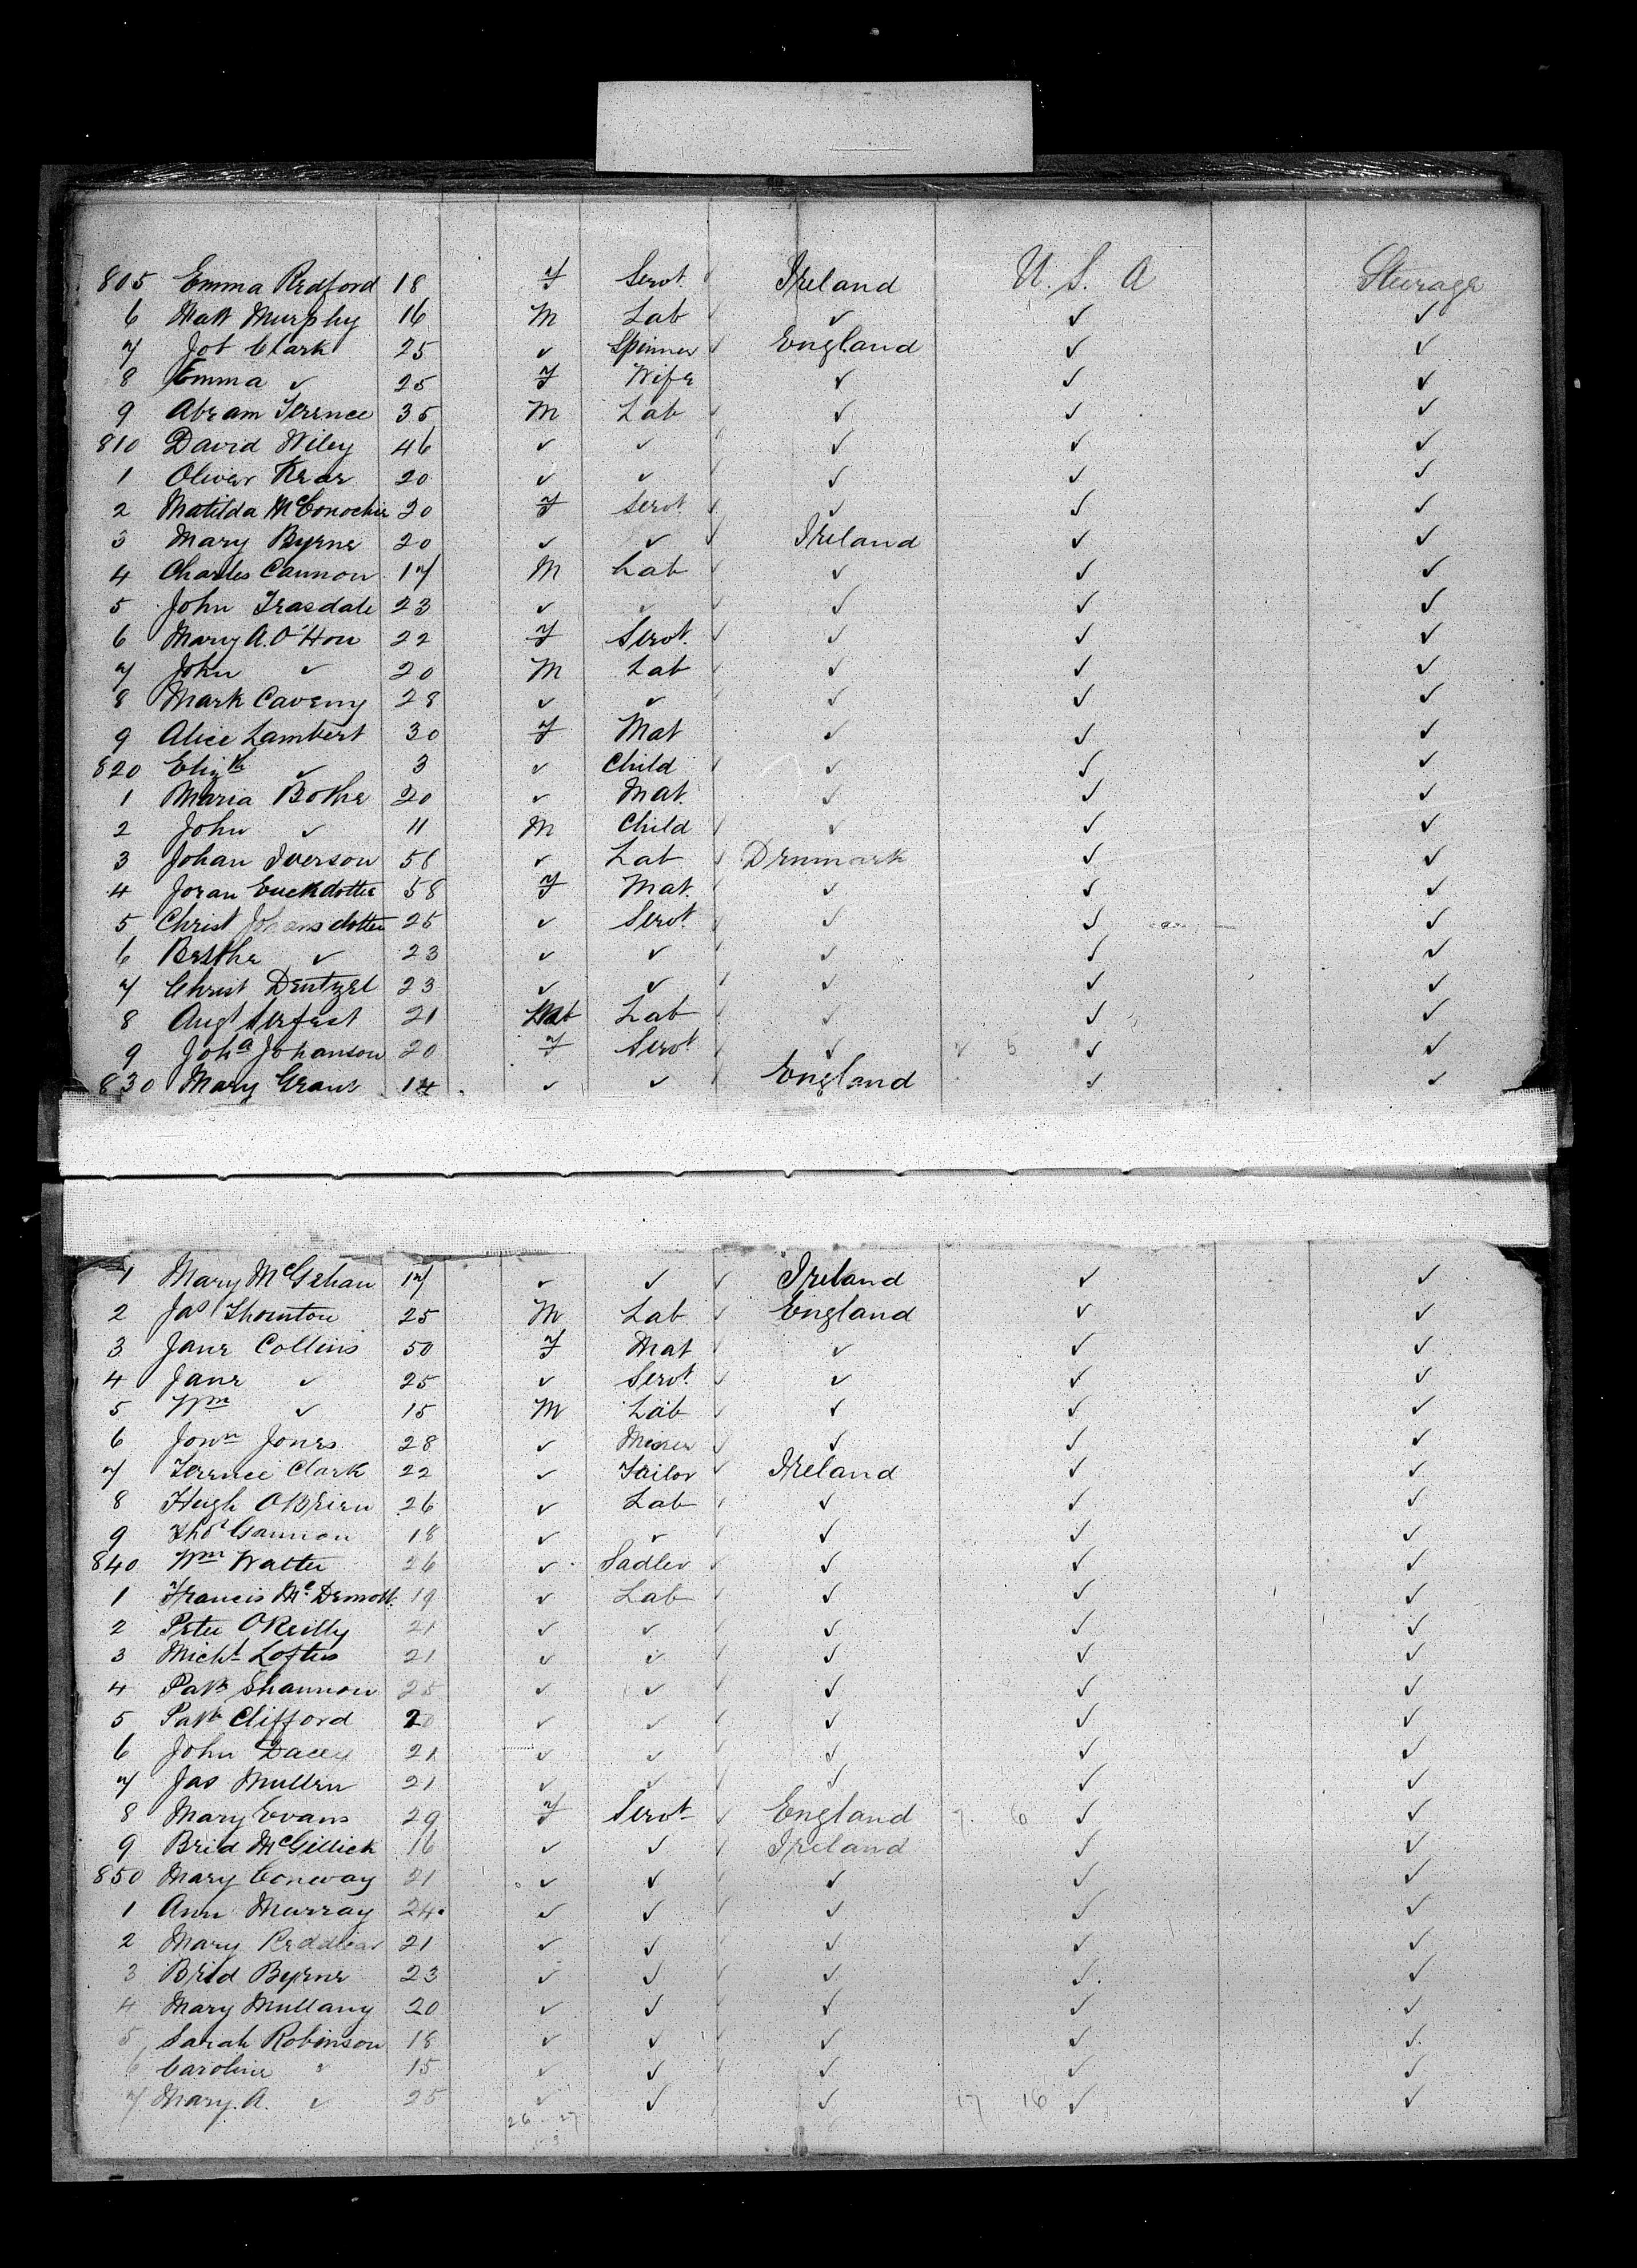 805 Emma Redford 18 F Servt. ✓ Ireland U. S. A Steerage
6 Matt Murphy 16 M Lab ✓ ✓ ✓ ✓
7 Job Clark 25 ✓ Spinner ✓ England ✓ ✓
8 Emma ✓ 25 F Wife ✓ ✓ ✓
9 Abram Terence 35 M Lab ✓ ✓ ✓ ✓
810 David Wiley 46 ✓ ✓ ✓ ✓ ✓ ✓
1 Oliver 20 ✓ ✓ ✓ ✓ ✓ ✓
2 Matilda McConochie 20 F Servt. ✓ ✓ ✓ ✓
3 Mary Byrne 20 ✓ ✓ ✓ Ireland ✓ ✓
4 Charles Cannon 17 M Lab ✓ ✓ ✓ ✓
5 John Trasdale 23 ✓ ✓ ✓ ✓ ✓ ✓
6 Mary A. O'Hou 22 F Servt. ✓ ✓ ✓ ✓
7 John ✓ 20 M Lab ✓ ✓ ✓ ✓
8 Mark Caveny 28 ✓ ✓ ✓ ✓ ✓ ✓
9 Alice Lambert 30 F Mat ✓ ✓ ✓
820 Elizth ✓ 3 ✓ Child ✓ ✓ ✓ ✓
1 Maria Bothe 20 ✓ Mat. ✓ ✓ ✓
2 John ✓ 11 M Child ✓ ✓ ✓ ✓
3 Johan Iverson 56 ✓ Lab ✓ Denmark ✓ ✓
4 Joran Euckdotter 58 F Mat. ✓ ✓ ✓ ✓
5 Christ Johansdotter 25 ✓ Servt. ✓ ✓ ✓ ✓
6 Berthe ✓ 23 ✓ ✓ ✓ ✓ ✓ ✓
7 Christ Dentzel 23 ✓ ✓ ✓ ✓ ✓ ✓
8 Augt 21 Lab ✓ ✓ ✓ ✓
9 Joha Johanson 20 F Servt. ✓ ✓ 5 ✓ ✓
830 Mary Grant 14 ✓ ✓ ✓ England ✓ ✓
1 Mary McGehan 17 ✓ ✓ ✓ Ireland ✓ ✓
2 Jas Thornton 25 M Lab ✓ England ✓ ✓
3 Jane Collins 50 F Mat ✓ ✓ ✓
4 Jane ✓ 25 ✓ Servt. ✓ ✓ ✓ ✓
5 Wm ✓ 15 M Lab ✓ ✓ ✓ ✓
6 Jonn Jones 28 ✓ Miner ✓ ✓ ✓ ✓
7 Terence Clark 22 ✓ Tailor ✓ Ireland ✓ ✓
8 Hugh OBrien 26 ✓ Lab ✓ ✓ ✓ ✓
9 Thos Gannon 18 ✓ ✓ ✓ ✓ ✓ ✓
840 Wm Walter 26 ✓ Sadler ✓ ✓ ✓ ✓
1 Francis McDermott. 19 ✓ Lab ✓ ✓ ✓ ✓
2 Peter OReilly 21 ✓ ✓ ✓ ✓ ✓ ✓
3 Michl Loftus 21 ✓ ✓ ✓ ✓ ✓ ✓
4 Patk Shannon 25 ✓ ✓ ✓ ✓ ✓ ✓
5 Patk Clifford 20 ✓ ✓ ✓ ✓ ✓ ✓
6 John Dacey 21 ✓ ✓ ✓ ✓ ✓ ✓
7 Jas Mullen 21 ✓ ✓ ✓ ✓ ✓ ✓
8 Mary Evans 29 F Servt ✓ England 7 6 ✓ ✓
9 Brid McGellick 16 ✓ ✓ ✓ Ireland ✓ ✓
850 Mary Conway 21 ✓ ✓ ✓ ✓ ✓ ✓
1 Ann Murray 24 ✓ ✓ ✓ ✓ ✓ ✓
2 Mary 21 ✓ ✓ ✓ ✓ ✓ ✓
3 Brid Byrne 23 ✓ ✓ ✓ ✓ ✓ ✓
4 Mary Mullany 20 ✓ ✓ ✓ ✓ ✓ ✓
5 Sarah Robinson 18 ✓ ✓ ✓ ✓ ✓ ✓
6 Caroline " 15 ✓ ✓ ✓ ✓ ✓ ✓
7 Mary. A. ✓ 25 ✓ ✓ ✓ 17 16 ✓ ✓
26 27